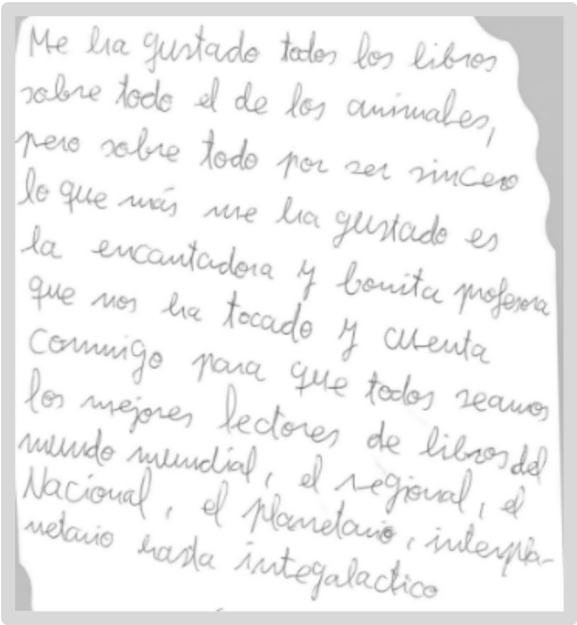 Me ha gustado todos los libros
sobre todo el de los animales,
pero sobre todo por ser sincero
lo que más me ha gustado es
la encantadora y bonita profesora
que nos ha tocado y cuenta
conmigo para que todos seamos
los mejores lectores de libros del
mundo mundial, el regional, el
Nacional, el planetario, interpla-
netario hasta integalactico